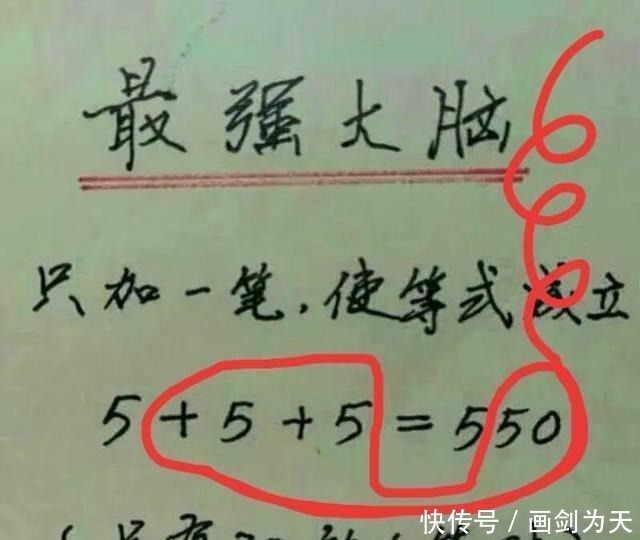 最强大脑
只加一笔,使等式成立
5+5+5=550
快传号/画剑为天